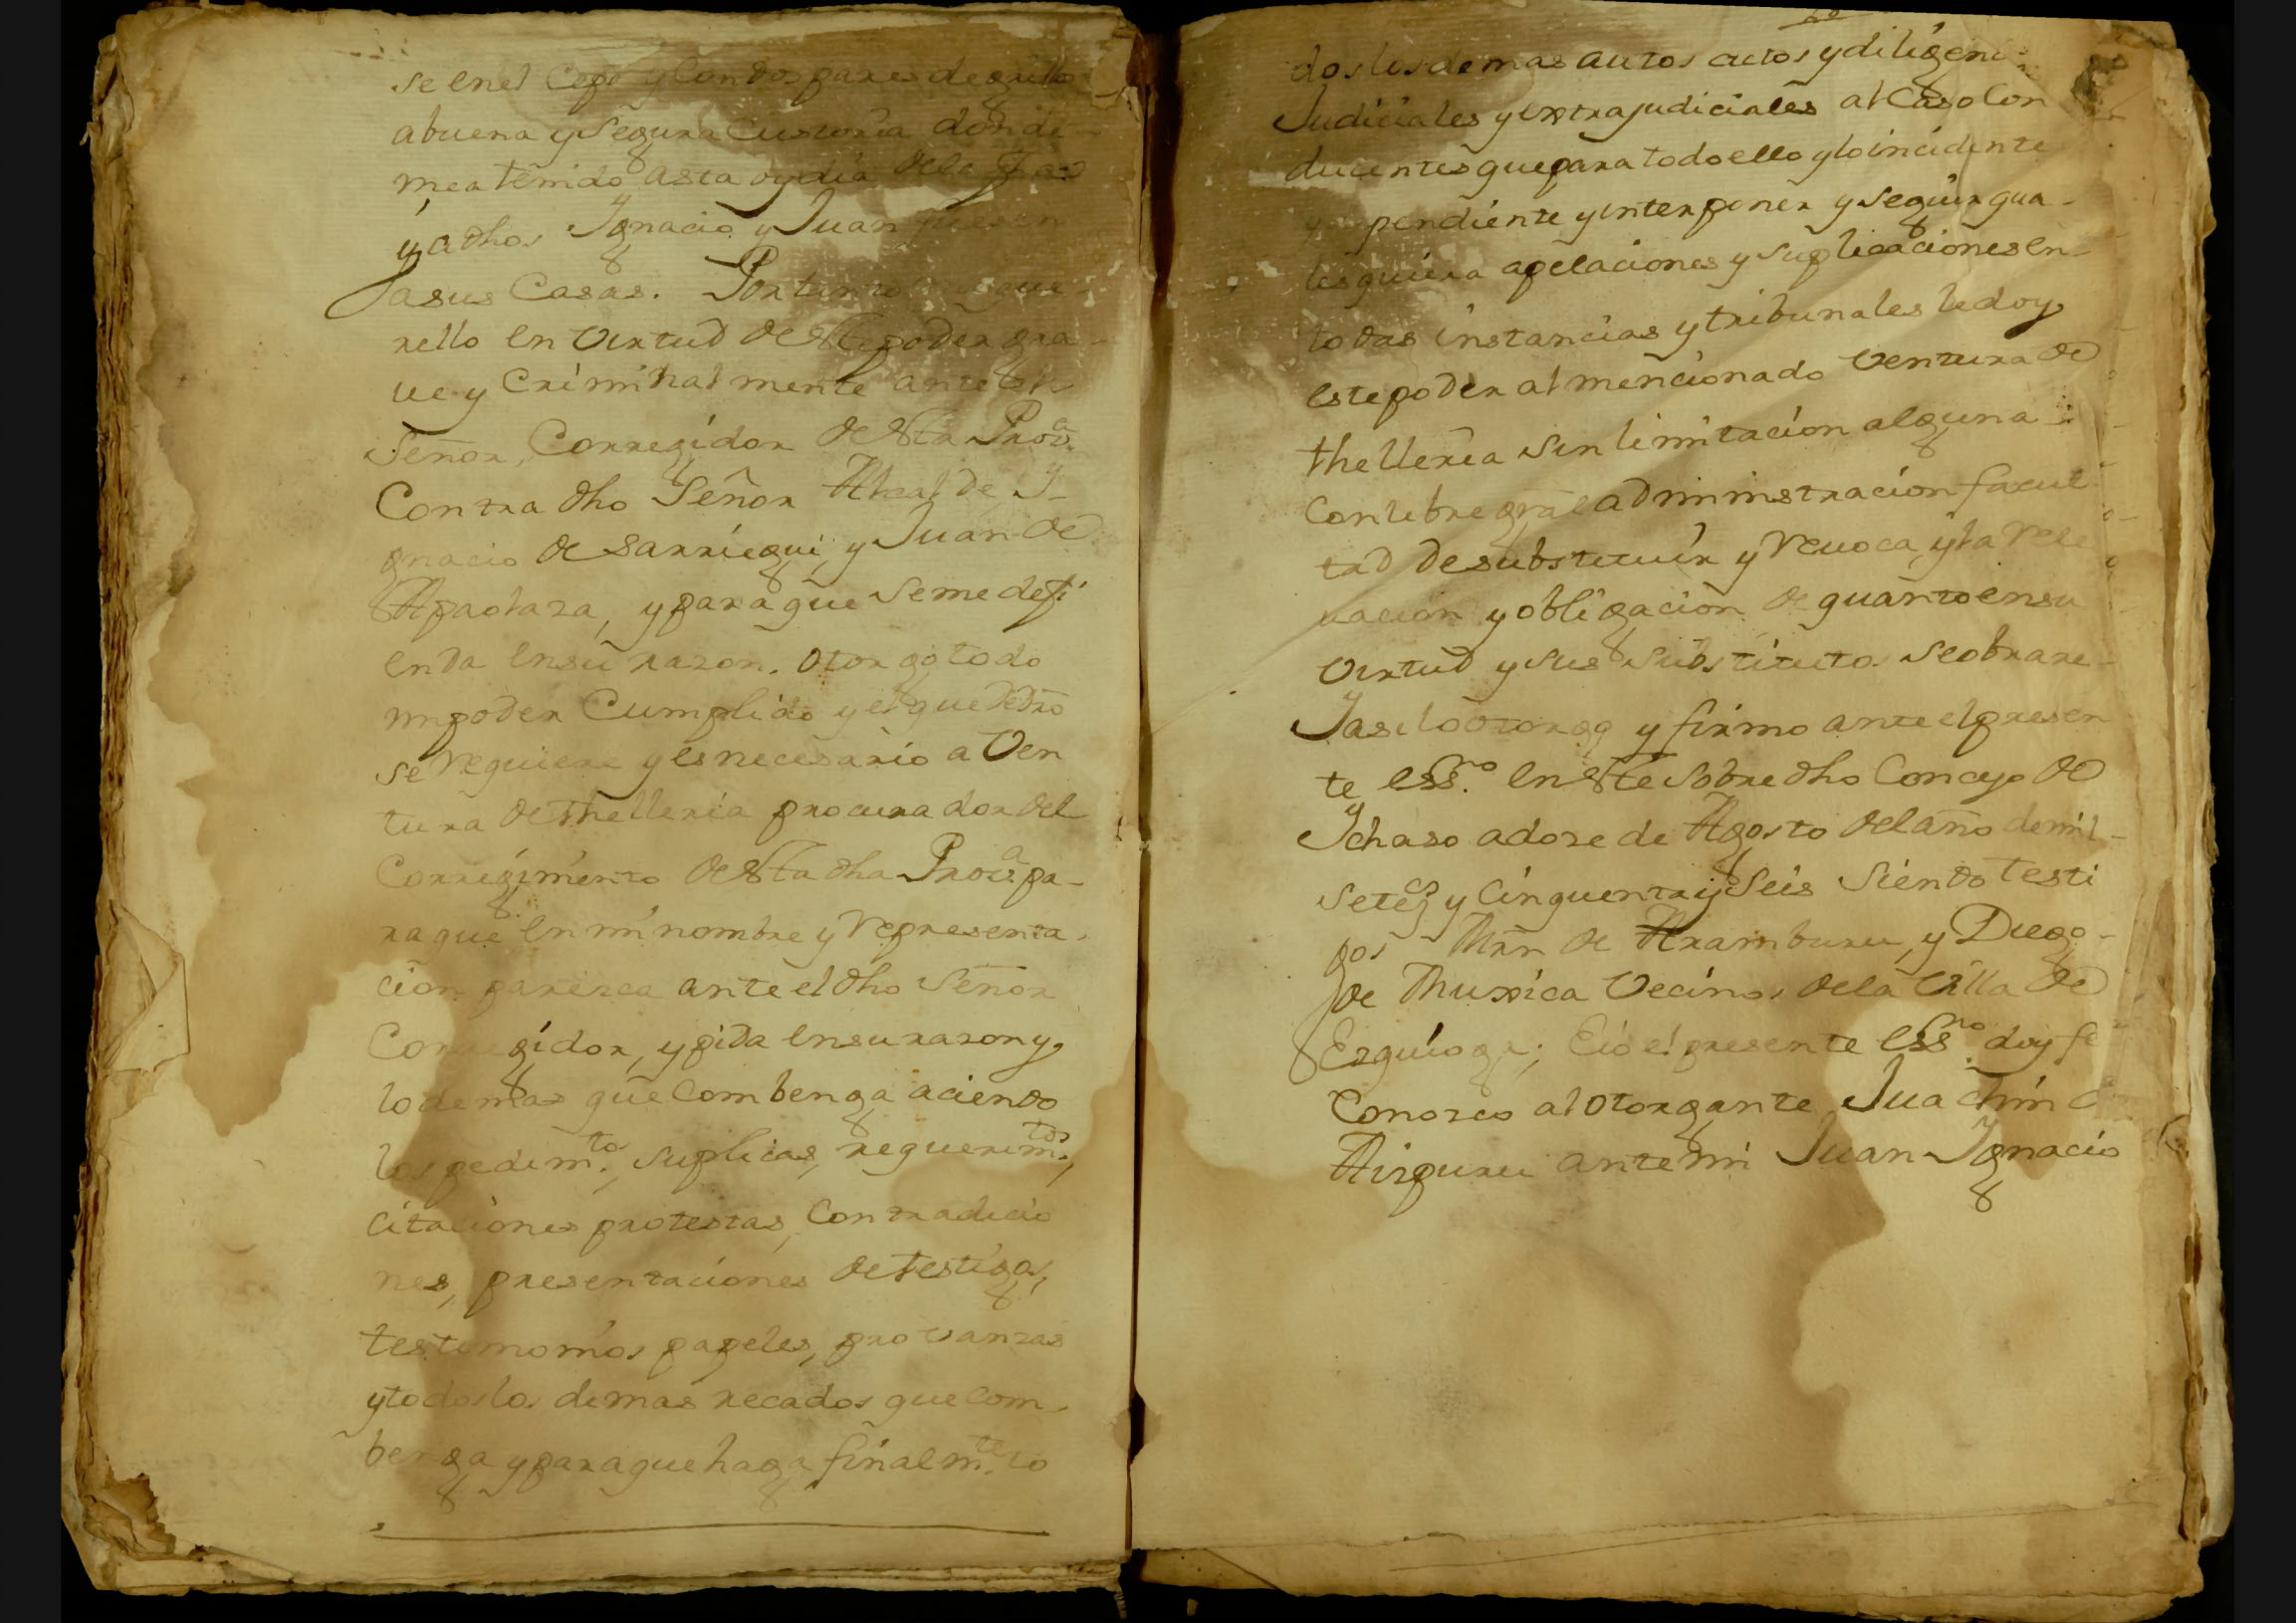 se enel Cepo y Con dos pares de grillos
abuena y Segura Custoria donde
mea tenido asta oy dia dela
y a dhos Ygnacio y Juan
asus Casas. Por tanto me que
rello en virtud de este poder gra
ue y Criminalmente ante
Señor, Corregidor desta Prov.ª
Contra dho Señor Alcalde, Y-
gnacio de Sarriegui, y Juan de
Apaolaza, y para que seme defi
enda en su razon. Otorgo todo
mi poder Cumplido y el que de dro
se requiere y es necesario a Ven
tura de Thelleria procurador del
Corregimiento desta dha Prov.ª pa-
ra que en mi nombre y representa
cion parezca ante el dho Señor
Corregidor, y pida en su razon y
lo demas que Combenga aciendo
los pedim.tos, suplicas, requerim.tos,
Citaciones protestas, Contradicio
nes, presentaciones de testigos,
testimonios papeles, provanzas
y todos los demas recados que Com
benga y para que haga finalm.te to
dos los demas autos actos y diligenci
Judiciales y extrajudiciales al Caso Con
ducentes que para todo ello y lo incidente
y pendiente y interponer y seguir qua-
les quiera apelaciones y suplicaciones en
todas instancias y tribunales le doy
este poder al mencionado Ventura de
thelleria sin limitacion alguna
Con libre gral administracion facul
tad de substituir y revoca, y la rele
vacion y obligacion de quanto en su
virtud y sus substitutos se obrare-
Y asi lo otorgo y firmo ante el presen
te ess.no en este sobre dho Concejo de
Ychaso a doze de Agosto del año de mil-
setec.s y Cinquenta y Seis Siendo testi
gos Mrn de Aramburu, y Diego-
de Muxica Vecinos dela Villa de
Ezquioga; E io el presente ess.no doy fe
Conozco al otorgante Juachin
Aizpuru ante mi Juan Ygnacio